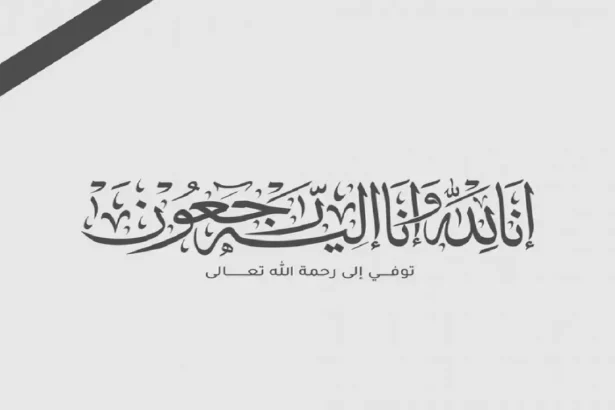 إنا لله وإنا إليه راجعون
توفي إلى رحمة الله تعالى